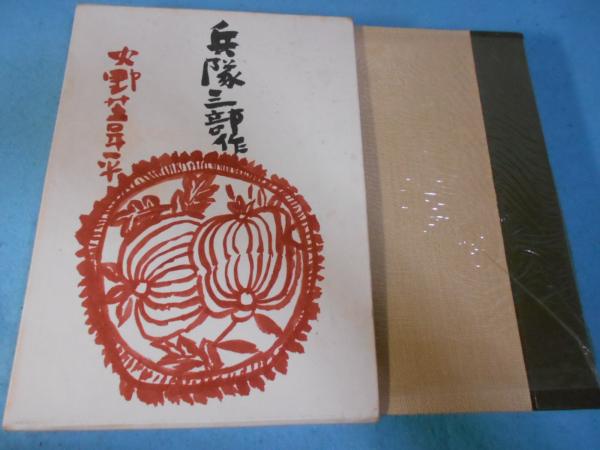 兵隊三部作
火野葦平